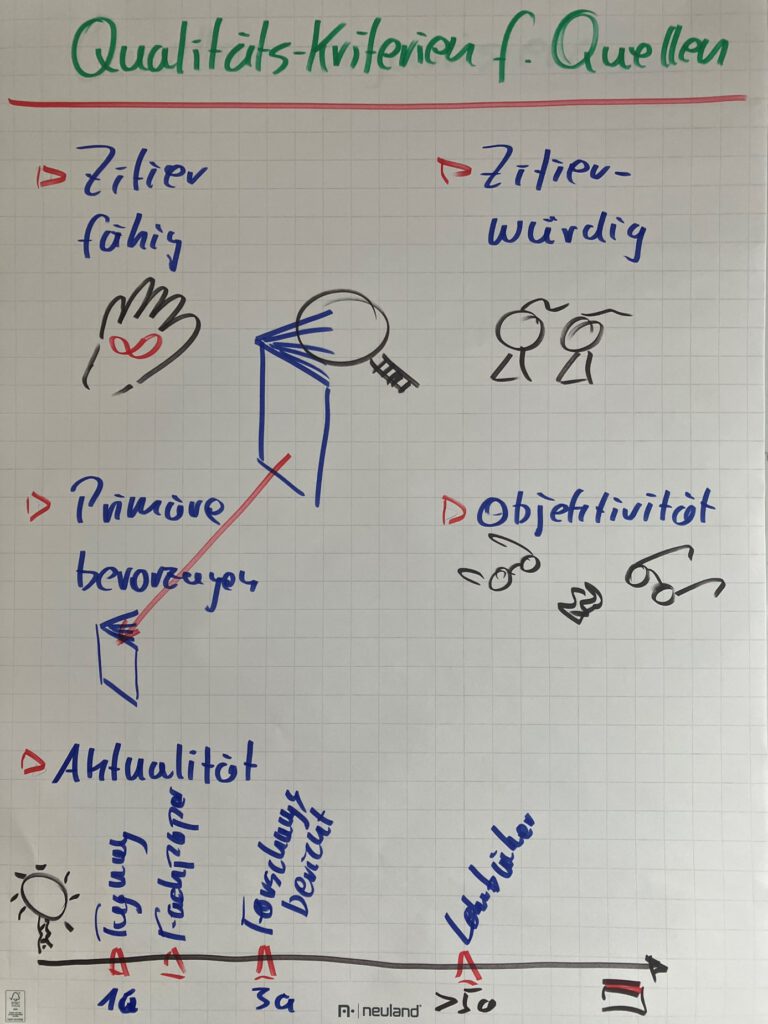 Qualitäts-Kriterien f. Quellen
Zitier
fähig
Zitier-
würdig
Primäre
bevorzugen
Objektivität
Aktualität
Tagung
Fachpaper
Forschungs
bericht
Lehrbücher
1a
3a
>5a
neuland